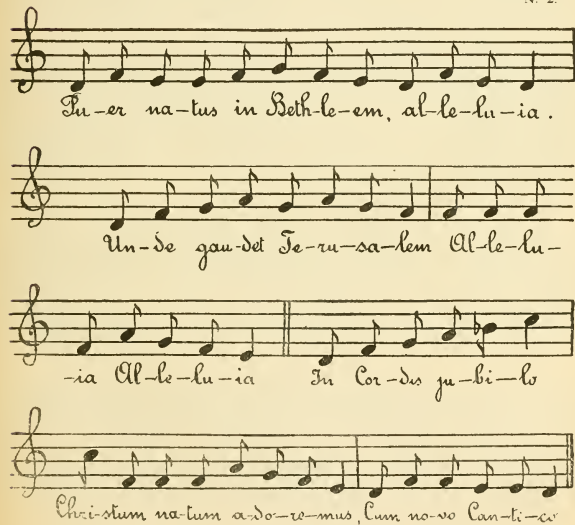 N. 2.
Pu-er na-tus in Beth-le-em, al-le-lu-ia.
Un-de gau-det Je-ru-sa-lem Al-le-lu-
-ia Al-le-lu-ia In Cor-dis ju-bi-lo
Chri-stum na-tum a-do-re-mus, Cum no-vo Can-ti-co